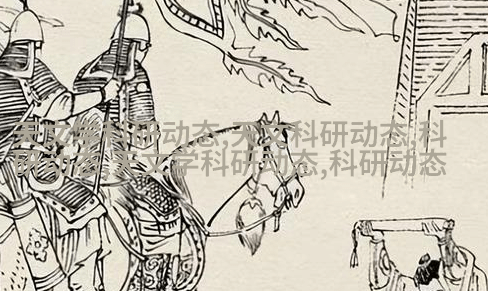 天文学科研动态,天文科研动态,科
研动态,天文学科研动态,科研动态